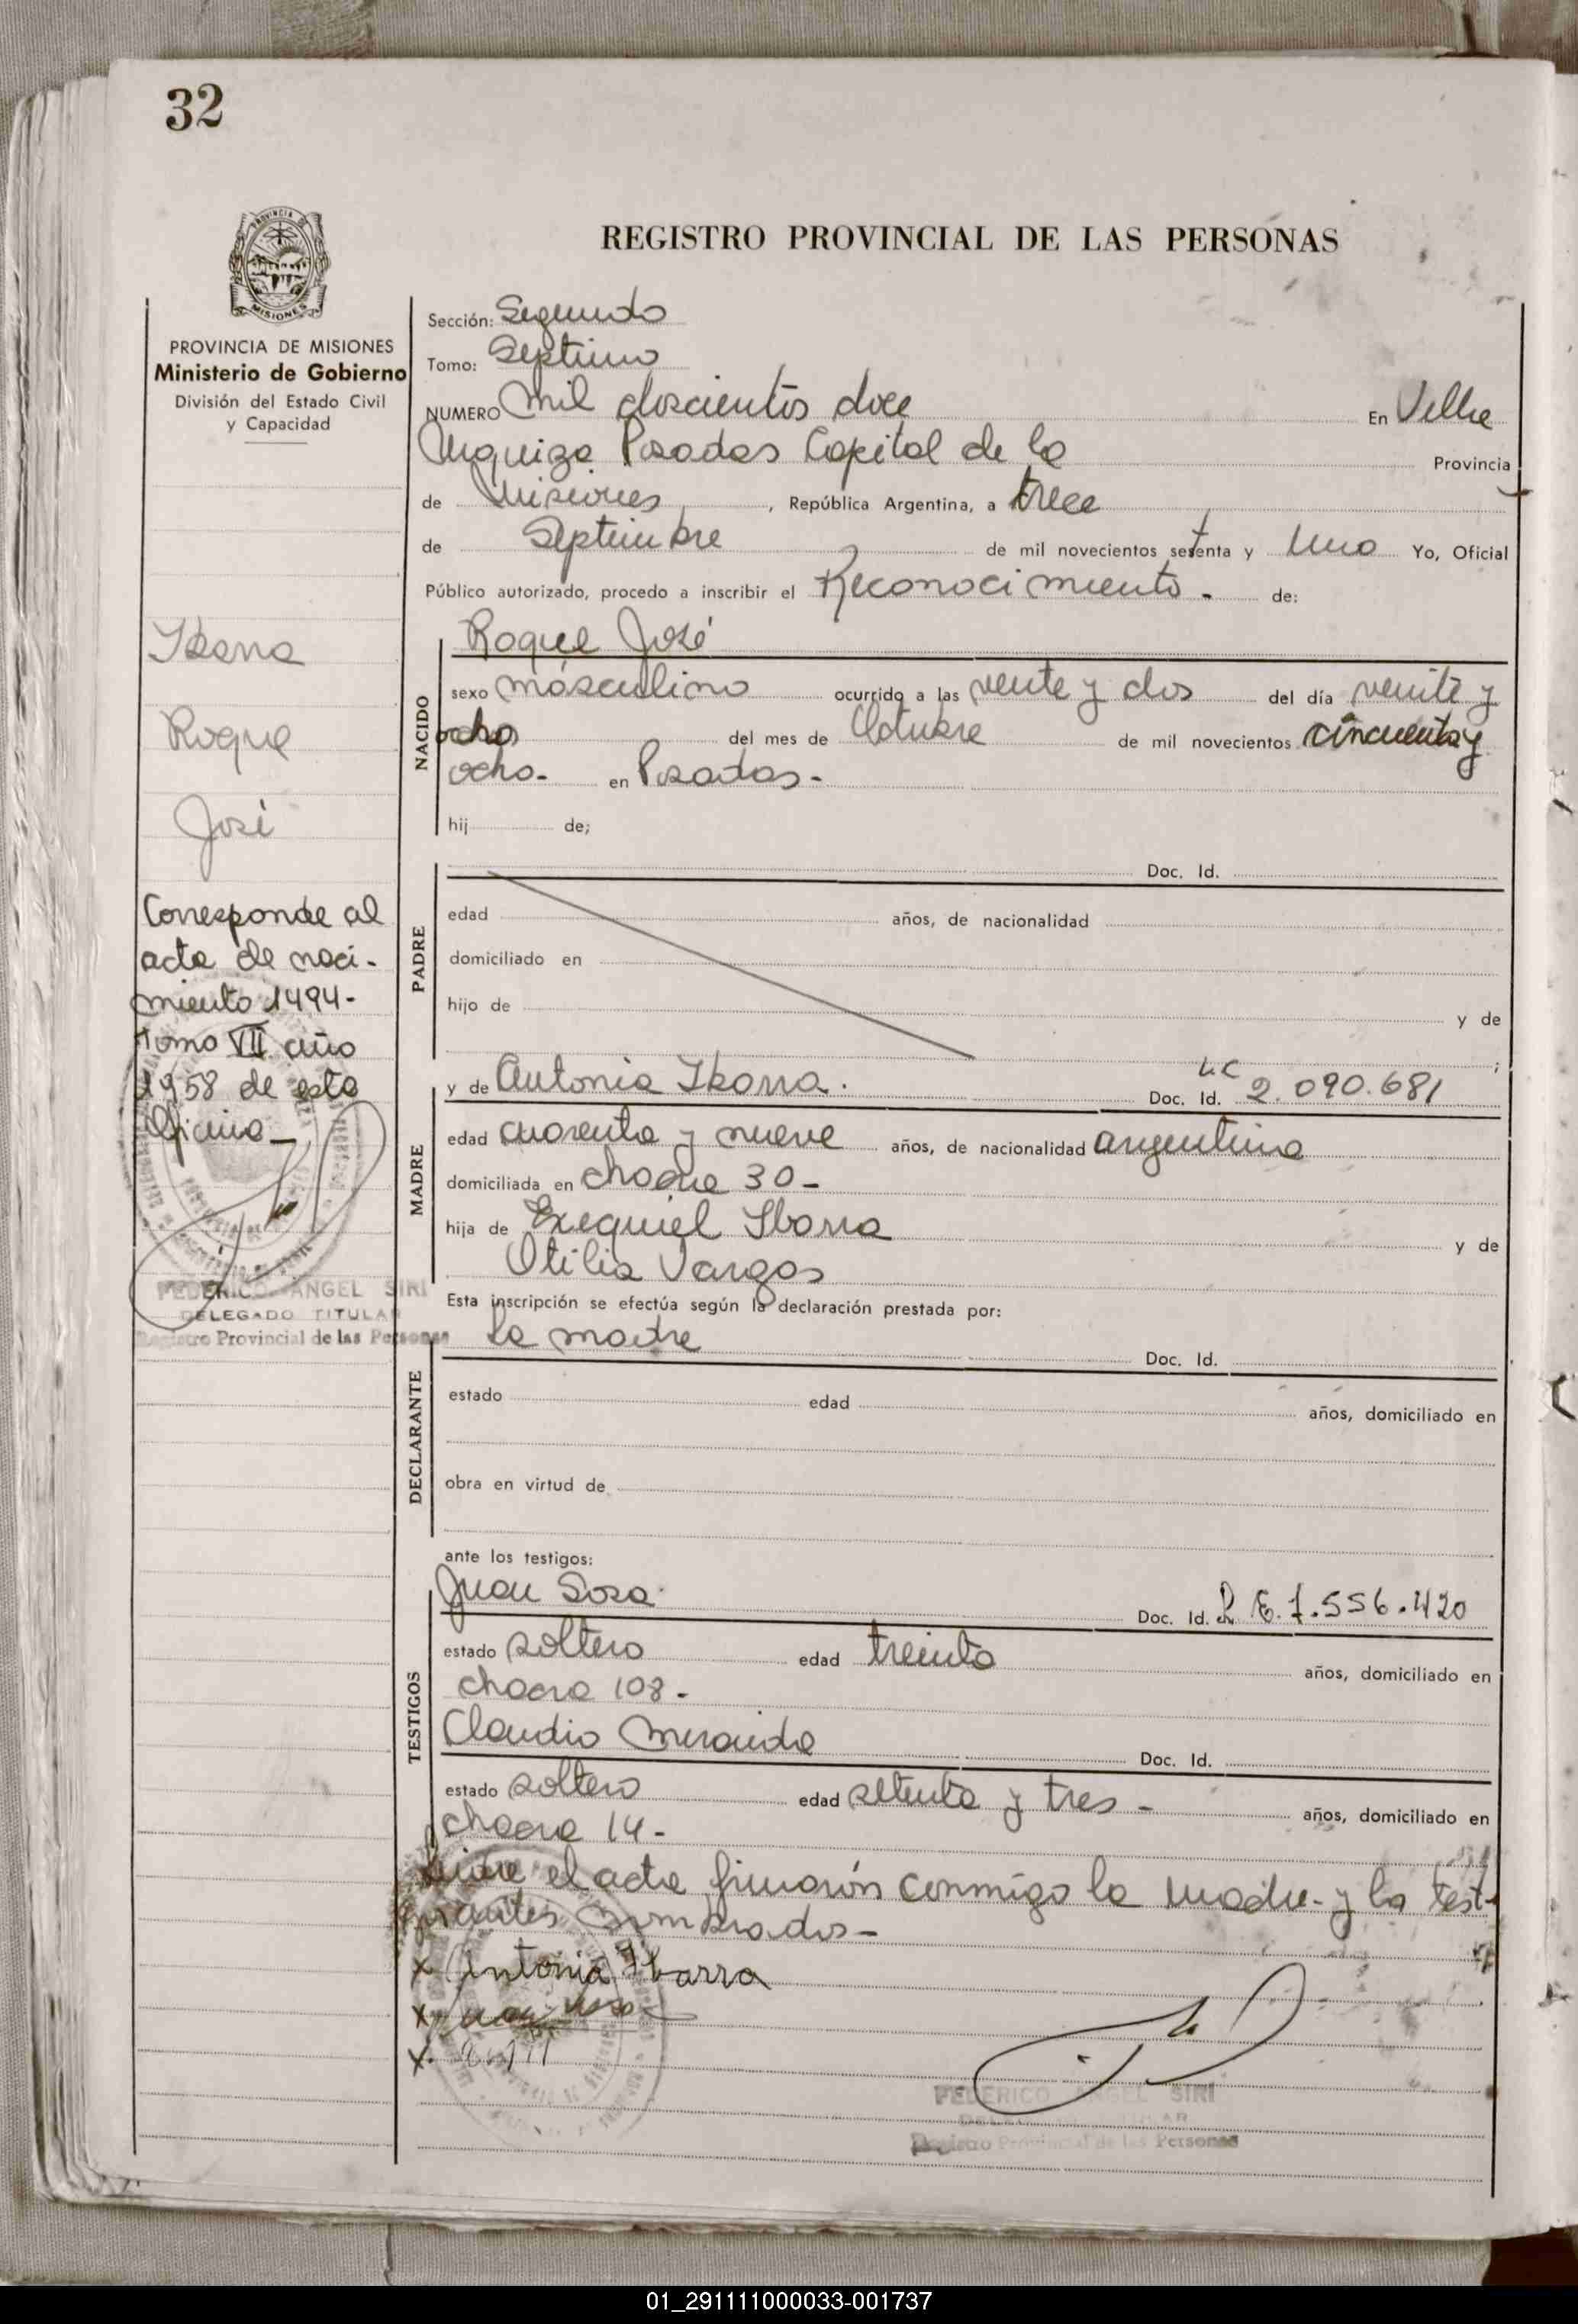 32
PROVINCIA DE MISIONES
Ministerio de Gobierno
División del Estado Civil
y Capacidad
REGISTRO PROVINCIAL DE LAS PERSONAS
Sección: Segundo
Tomo: Septimo
NUMERO mil doscientos doce En Villa
Urquiza Posadas Capital de la Provincia
de Misiones, República Argentina, a trece
de Septiembre de mil novecientos setenta y Uno Yo, Oficial
Público autorizado, procedo a inscribir el Reconocimiento - de:
Ibarra
Roque
José
Corresponde al
acta de naci-
miento 1494-
Tomo VII año
1958 de esta
Oficina -
FEDERICO ANGEL SIRI
DELEGADO TITULAR
Registro Provincial de las Personas
NACIDO
Roque José
sexo masculino ocurrido a las veinte y dos del día veinte y
ocho del mes de Octubre de mil novecientos cincuenta y
ocho - en Posadas -
hij de;
PADRE
Doc. Id.
edad años, de nacionalidad
domiciliado en
hijo de y de
;
MADRE
y de Antonia Ibarra. Doc. Id. L.C 2.090.681
edad cuarenta y nueve años, de nacionalidad argentina
domiciliada en chacra 30 -
hija de Exequiel Ibarra y de
Otilia Vargas
Esta inscripción se efectúa según la declaración prestada por:
la madre Doc. Id.
DECLARANTE
estado edad años, domiciliado en
obra en virtud de
ante los testigos:
TESTIGOS
Juan Sosa. Doc. Id. L E. 7.556.420
estado soltero edad treinta años, domiciliado en
chacra 108 -
Claudio Miranda Doc. Id.
estado soltero edad setenta y tres - años, domiciliado en
chacra 14 -
el acta firmarón conmigo la madre y la test-
nombrados -
x Antonia Ibarra
x Juan Sosa
x
FEDERICO ANGEL SIRI
DELEGADO TITULAR
Registro Provincial de las Personas
01_291111000033-001737